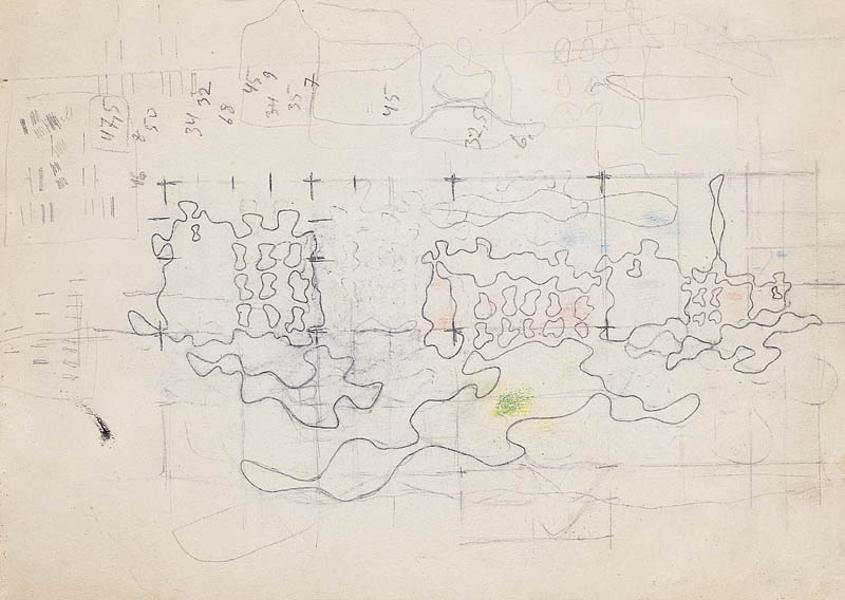 47,5
46 8
50
34
32
68
45
34 9
35
7
45
32,5
6